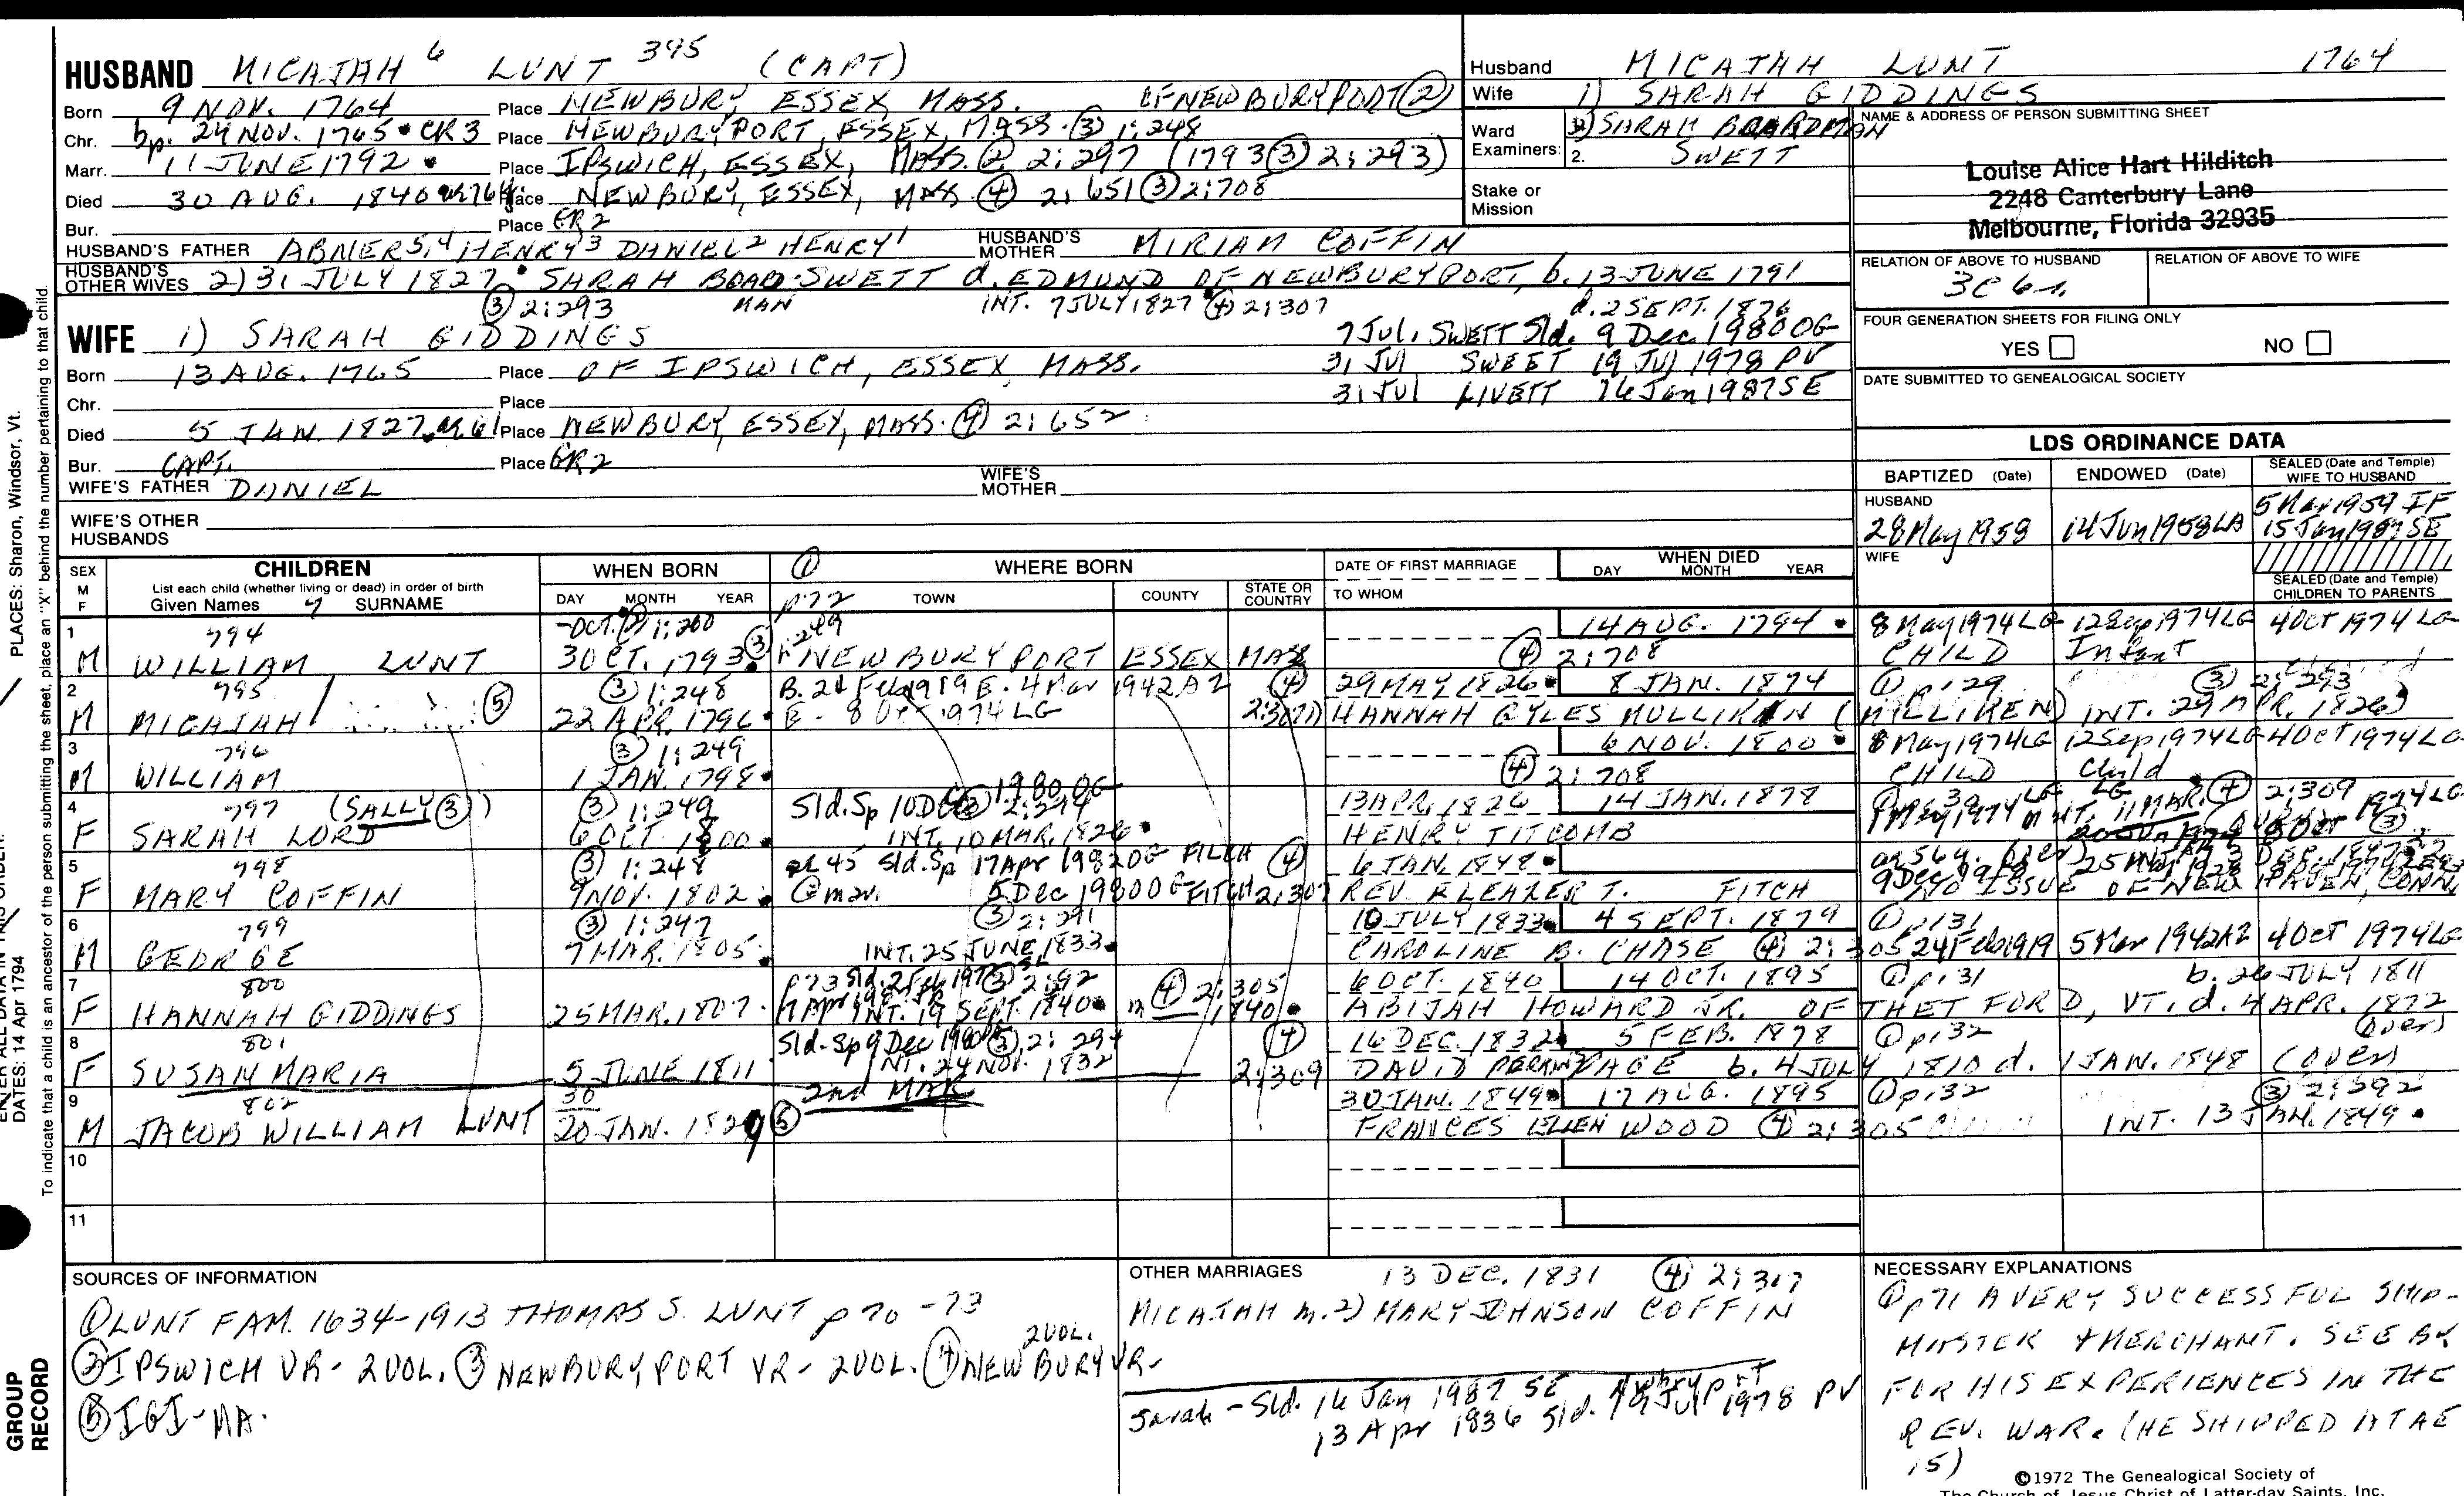 HUSBAND MICAJAH 6 LUNT 395 (CAPT)
Born 9 NOV. 1764 Place NEWBURY, ESSEX, MASS. OF NEWBURYPORT (2)
Chr. bp. 24 NOV. 1765 • CR3 Place NEWBURYPORT, ESSEX, MASS. (3) 1:248
Marr. 11 JUNE 1792 • Place IPSWICH, ESSEX, MASS. (2) 2:297 (1793 (3) 2:293)
Died 30 AUG. 1840 Place NEWBURY, ESSEX, MASS. (4) 2:651 (3) 2:708
Bur. Place GR2
HUSBAND'S FATHER ABNER 5, 4 HENRY 3 DANIEL 2 HENRY 1 HUSBAND'S MOTHER MIRIAM COFFIN
HUSBAND'S OTHER WIVES 2) 31 JULY 1827 • SARAH BOARDMAN SWETT d. EDMUND OF NEWBURYPORT, b. 13 JUNE 1791
(3) 2:293 INT. 7 JULY 1827 (4) 2:307 d. 2 SEPT. 1876
Husband MICAJAH LUNT 1764
Wife 1) SARAH GIDDINGS
Ward Examiners: 2) SARAH BOARDMAN
2. SWETT
Stake or Mission
NAME & ADDRESS OF PERSON SUBMITTING SHEET
Louise Alice Hart Hilditch
2248 Canterbury Lane
Melbourne, Florida 32935
RELATION OF ABOVE TO HUSBAND RELATION OF ABOVE TO WIFE
3C 6r.
FOUR GENERATION SHEETS FOR FILING ONLY
YES NO
DATE SUBMITTED TO GENEALOGICAL SOCIETY
WIFE 1) SARAH GIDDINGS
7 Jul. SWETT Sld. 9 Dec 1980 OG
31 Jul SWEET 19 Jul 1978 PV
31 Jul LIVETT 16 Jan 1987 SE
Born 13 AUG. 1765 Place OF IPSWICH, ESSEX, MASS.
Chr. Place
Died 5 JAN. 1827. Place NEWBURY, ESSEX, MASS. (4) 2:652
Bur. Place GR2
WIFE'S FATHER CAPT. DANIEL WIFE'S MOTHER
WIFE'S OTHER HUSBANDS
LDS ORDINANCE DATA
BAPTIZED (Date) ENDOWED (Date) SEALED (Date and Temple) WIFE TO HUSBAND
HUSBAND 28 May 1958 14 Jun 1958 LA 5 Mar 1959 IF
15 Jan 1987 SE
WIFE
SEALED (Date and Temple) CHILDREN TO PARENTS
SEX M F
CHILDREN
List each child (whether living or dead) in order of birth
Given Names 7 SURNAME
WHEN BORN DAY MONTH YEAR
(1) p72 WHERE BORN TOWN COUNTY STATE OR COUNTRY
DATE OF FIRST MARRIAGE TO WHOM
WHEN DIED DAY MONTH YEAR
1 794 -OCT. (2) 1:260 1:249 14 AUG. 1794 • 8 May 1974 LG 12 Sep 1974 LG 4 Oct 1974 LG
M WILLIAM LUNT 30 OCT. 1793 (3) NEWBURYPORT ESSEX MASS (4) 2:708 CHILD Infant
2 795 (3) 1:248 B. 24 Feb 1919 E. 4 Mar 1942 AZ (4) 29 MAY 1826 • 8 JAN. 1874 (1) p.129 (3) 2:293
M MICAJAH (5) 22 APR. 1796 • 8 Oct 1974 LG 2:307 HANNAH GYLES MULLIKEN (MILLIKEN) INT. 29 APR. 1826)
3 796 (3) 1:249 6 NOV. 1800 • 8 May 1974 LG 12 Sep 1974 LG 4 Oct 1974 LG
M WILLIAM 1 JAN. 1798 • (4) 2:708 CHILD Child
4 797 (SALLY (3)) (3) 1:249 Sld. Sp 10 Dec 1980 OG (3) 2:294 13 APR. 1826 14 JAN. 1878 INT. 11 MAR. (4) 2:309
F SARAH LORD 6 OCT. 1800 • INT. 10 MAR. 1826 • HENRY TITCOMB
5 798 (3) 1:248 Sld. Sp 17 Apr 1982 OG FILCH (4) 6 JAN. 1848 •
F MARY COFFIN 9 NOV. 1802 • @ mar. 5 Dec 1980 OG FITCH 2:307 REV. ELEAZER T. FITCH NO ISSUE OF NEW HAVEN, CONN.
6 799 (3) 1:247 (3) 2:291 10 JULY 1833 • 4 SEPT. 1879 (1) p131
M GEORGE 7 MAR. 1805. INT. 25 JUNE 1833 • CAROLINE B. CHASE (4) 2:305 24 Feb 1919 5 Mar 1942 AZ 4 Oct 1974 LG
7 800 p73 (3) 2:292 6 OCT. 1840 14 OCT. 1895 (1) p.31 b. 26 JULY 1811
F HANNAH GIDDINGS 25 MAR. 1807. INT. 19 SEPT. 1840 • m (4) 2:305 1840 • ABIJAH HOWARD JR. OF THETFORD, VT. d. 4 APR. 1872 (over)
8 801 Sld. Sp 9 Dec 1980 (3) 2:294 (4) 16 DEC. 1832 • 5 FEB. 1878 (1) p.132
F SUSAN MARIA 5 JUNE 1811 INT. 24 NOV. 1832 2:309 DAVID PERKINS PAGE b. 4 JULY 1810 d. 1 JAN. 1848 (over)
9 802 30 2nd MAR 30 JAN. 1849 • 17 AUG. 1895 (1) p.132 (3) 2:292
M JACOB WILLIAM LUNT 20 JAN. 1829 (5) FRANCES ELLEN WOOD (4) 2:305 INT. 13 JAN. 1849 •
10
11
SOURCES OF INFORMATION
(1) LUNT FAM. 1634-1913 THOMAS S. LUNT p 70-73
(2) IPSWICH VR- 2 VOL. (3) NEWBURYPORT VR- 2 VOL. (4) NEWBURY VR- 2 VOL.
(5) IGI-MA.
OTHER MARRIAGES 13 DEC. 1831 (4) 2:307
MICAJAH m. 2) MARY JOHNSON COFFIN
Sarah - Sld. 16 Jan 1987 SE Nwbryport
13 Apr 1836 Sld. 19 Jul 1978 PV
NECESSARY EXPLANATIONS
(1) p71 A VERY SUCCESSFUL SHIP-
MASTER & MERCHANT. SEE BK
FOR HIS EXPERIENCES IN THE
REV. WAR. (HE SHIPPED AT AE
15)
©1972 The Genealogical Society of
The Church of Jesus Christ of Latter-day Saints, Inc.
PLACES: Sharon, Windsor, Vt.
ENTER ALL DATA IN THIS ORDER:
DATES: 14 Apr 1794
To indicate that a child is an ancestor of the person submitting the sheet, place an "X" behind the number pertaining to that child.
GROUP
RECORD